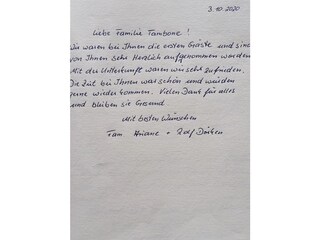 3.10.2020
Liebe Familie Tambone!
Wir waren bei Ihnen die ersten Gäste und sind
von Ihnen sehr Herzlich aufgenommen worden
Mit der Unterkunft waren wir sehr zufrieden.
Die Zeit bei Ihnen war schön und würden
gerne wieder kommen. Vielen Dank für alles
und bleiben sie Gesund
Mit besten Wünschen
Fam + Rolf